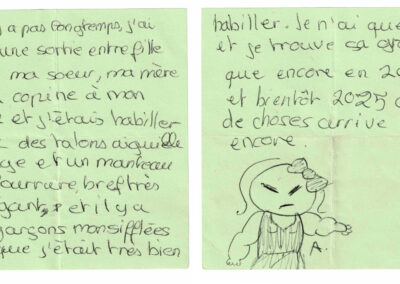 a pas longtemps, j'ai
une sortie entre fille
ma soeur, ma mère
copine à mon
et j'étais habiller
des talons aiguille
ge et un manteau
ourrure, bref très
gant, et il y a
garçons monsifflées
que j'était très bien
habiller. Je n'ai que
et je trouve sa
que encore en 20
et bientôt 2025
de choses arrive
encore.
A.